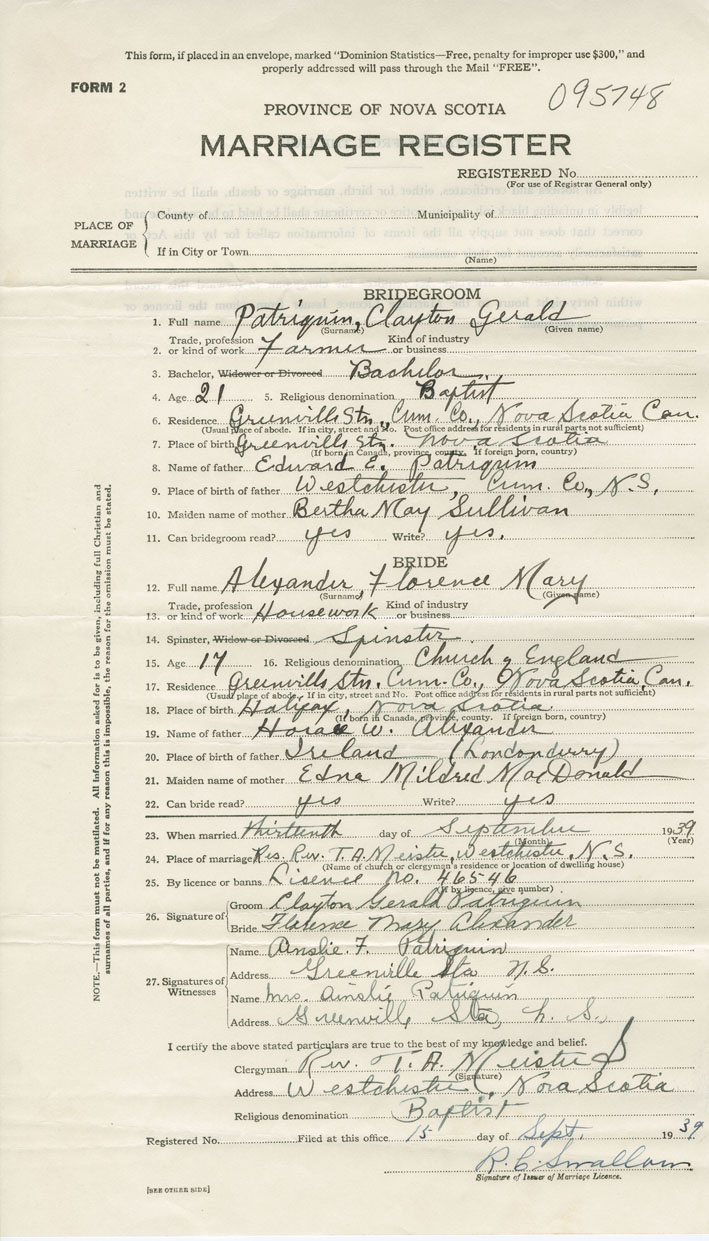 This form, if placed in an envelope, marked "Dominion Statistics—Free, penalty for improper use $300," and
properly addressed will pass through the Mail "FREE".
FORM 2
095748
PROVINCE OF NOVA SCOTIA
MARRIAGE REGISTER
REGISTERED No.
(For use of Registrar General only)
PLACE OF MARRIAGE
County of Municipality of
If in City or Town
(Name)
BRIDEGROOM
1. Full name Patriquin, Clayton Gerald
(Surname) (Given name)
2. Trade, profession or kind of work Farmer Kind of industry or business
3. Bachelor, Widower or Divorced Bachelor.
4. Age 21 5. Religious denomination Baptist
6. Residence Greenville Stn., Cum. Co., Nova Scotia Can.
(Usual place of abode. If in city, street and No. Post office address for residents in rural parts not sufficient)
7. Place of birth Greenville Stn. Nova Scotia
(If born in Canada, province, county. If foreign born, country)
8. Name of father Edward E. Patriquin
9. Place of birth of father Westchester, Cum. Co., N.S.
10. Maiden name of mother Bertha May Sullivan
11. Can bridegroom read? yes Write? yes.
BRIDE
12. Full name Alexander, Florence Mary
(Surname) (Given name)
13. Trade, profession or kind of work Housework Kind of industry or business
14. Spinster, Widow or Divorced Spinster.
15. Age 17 16. Religious denomination Church of England
17. Residence Greenville Stn. Cum. Co., Nova Scotia, Can.
(Usual place of abode, If in city, street and No. Post office address for residents in rural parts not sufficient)
18. Place of birth Halifax, Nova Scotia
(If born in Canada, province, county. If foreign born, country)
19. Name of father Horace W. Alexander
20. Place of birth of father Ireland (Londonderry)
21. Maiden name of mother Edna Mildred MacDonald
22. Can bride read? yes Write? yes
23. When married thirteenth day of September 1939
(Month) (Year)
24. Place of marriage Res. Rev. T. A. Meister, Westchester, N.S.
(Name of church or clergyman's residence or location of dwelling house)
25. By licence or banns Lisence no. 46546
(If by licence, give number)
26. Signature of
Groom Clayton Gerald Patriquin
Bride Florence Mary Alexander
27. Signatures of Witnesses
Name Ainslie F. Patriquin
Address Greenville Sta N.S.
Name Mrs. Ainslie Patriquin
Address Greenville Sta, N.S.
I certify the above stated particulars are true to the best of my knowledge and belief.
Clergyman Rev. T. A. Meister
(Signature)
Address Westchester, Nova Scotia
Religious denomination Baptist
Registered No. Filed at this office 15 day of Sept. 1939.
R. C. Swallow
Signature of Issuer of Marriage Licence.
[SEE OTHER SIDE]
NOTE.—This form must not be mutilated. All information asked for is to be given, including full Christian and
surnames of all parties, and if for any reason this is impossible, the reason for the omission must be stated.